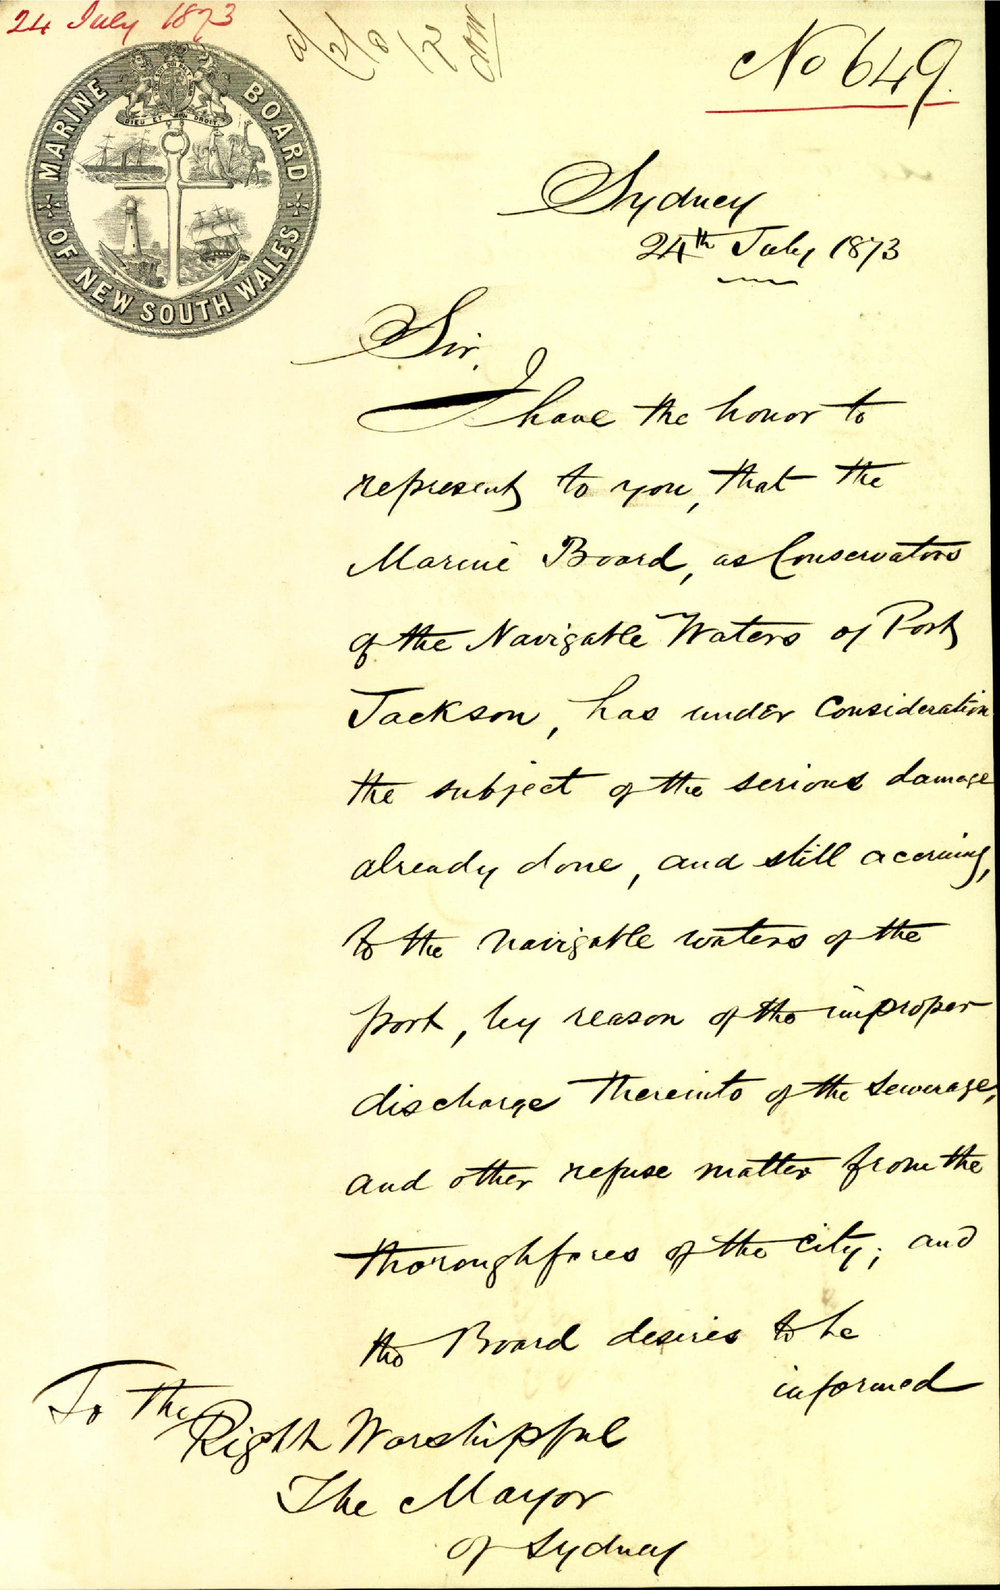 24 July 1873
No 649.
MARINE BOARD
OF NEW SOUTH WALES
DIEU ET MON DROIT
Sydney
24th July 1873
Sir,
I have the honor to
represent to you, that the
Marine Board, as Conservators
of the Navigable Waters of Port
Jackson, has under consideration
the subject of the serious damage
already done, and still accruing,
to the navigable waters of the
port, by reason of the improper
discharge thereinto of the sewerage,
and other refuse matter from the
thoroughfares of the city; and
the Board desires to be
informed
To The
Right Worshipful
The Mayor
of Sydney